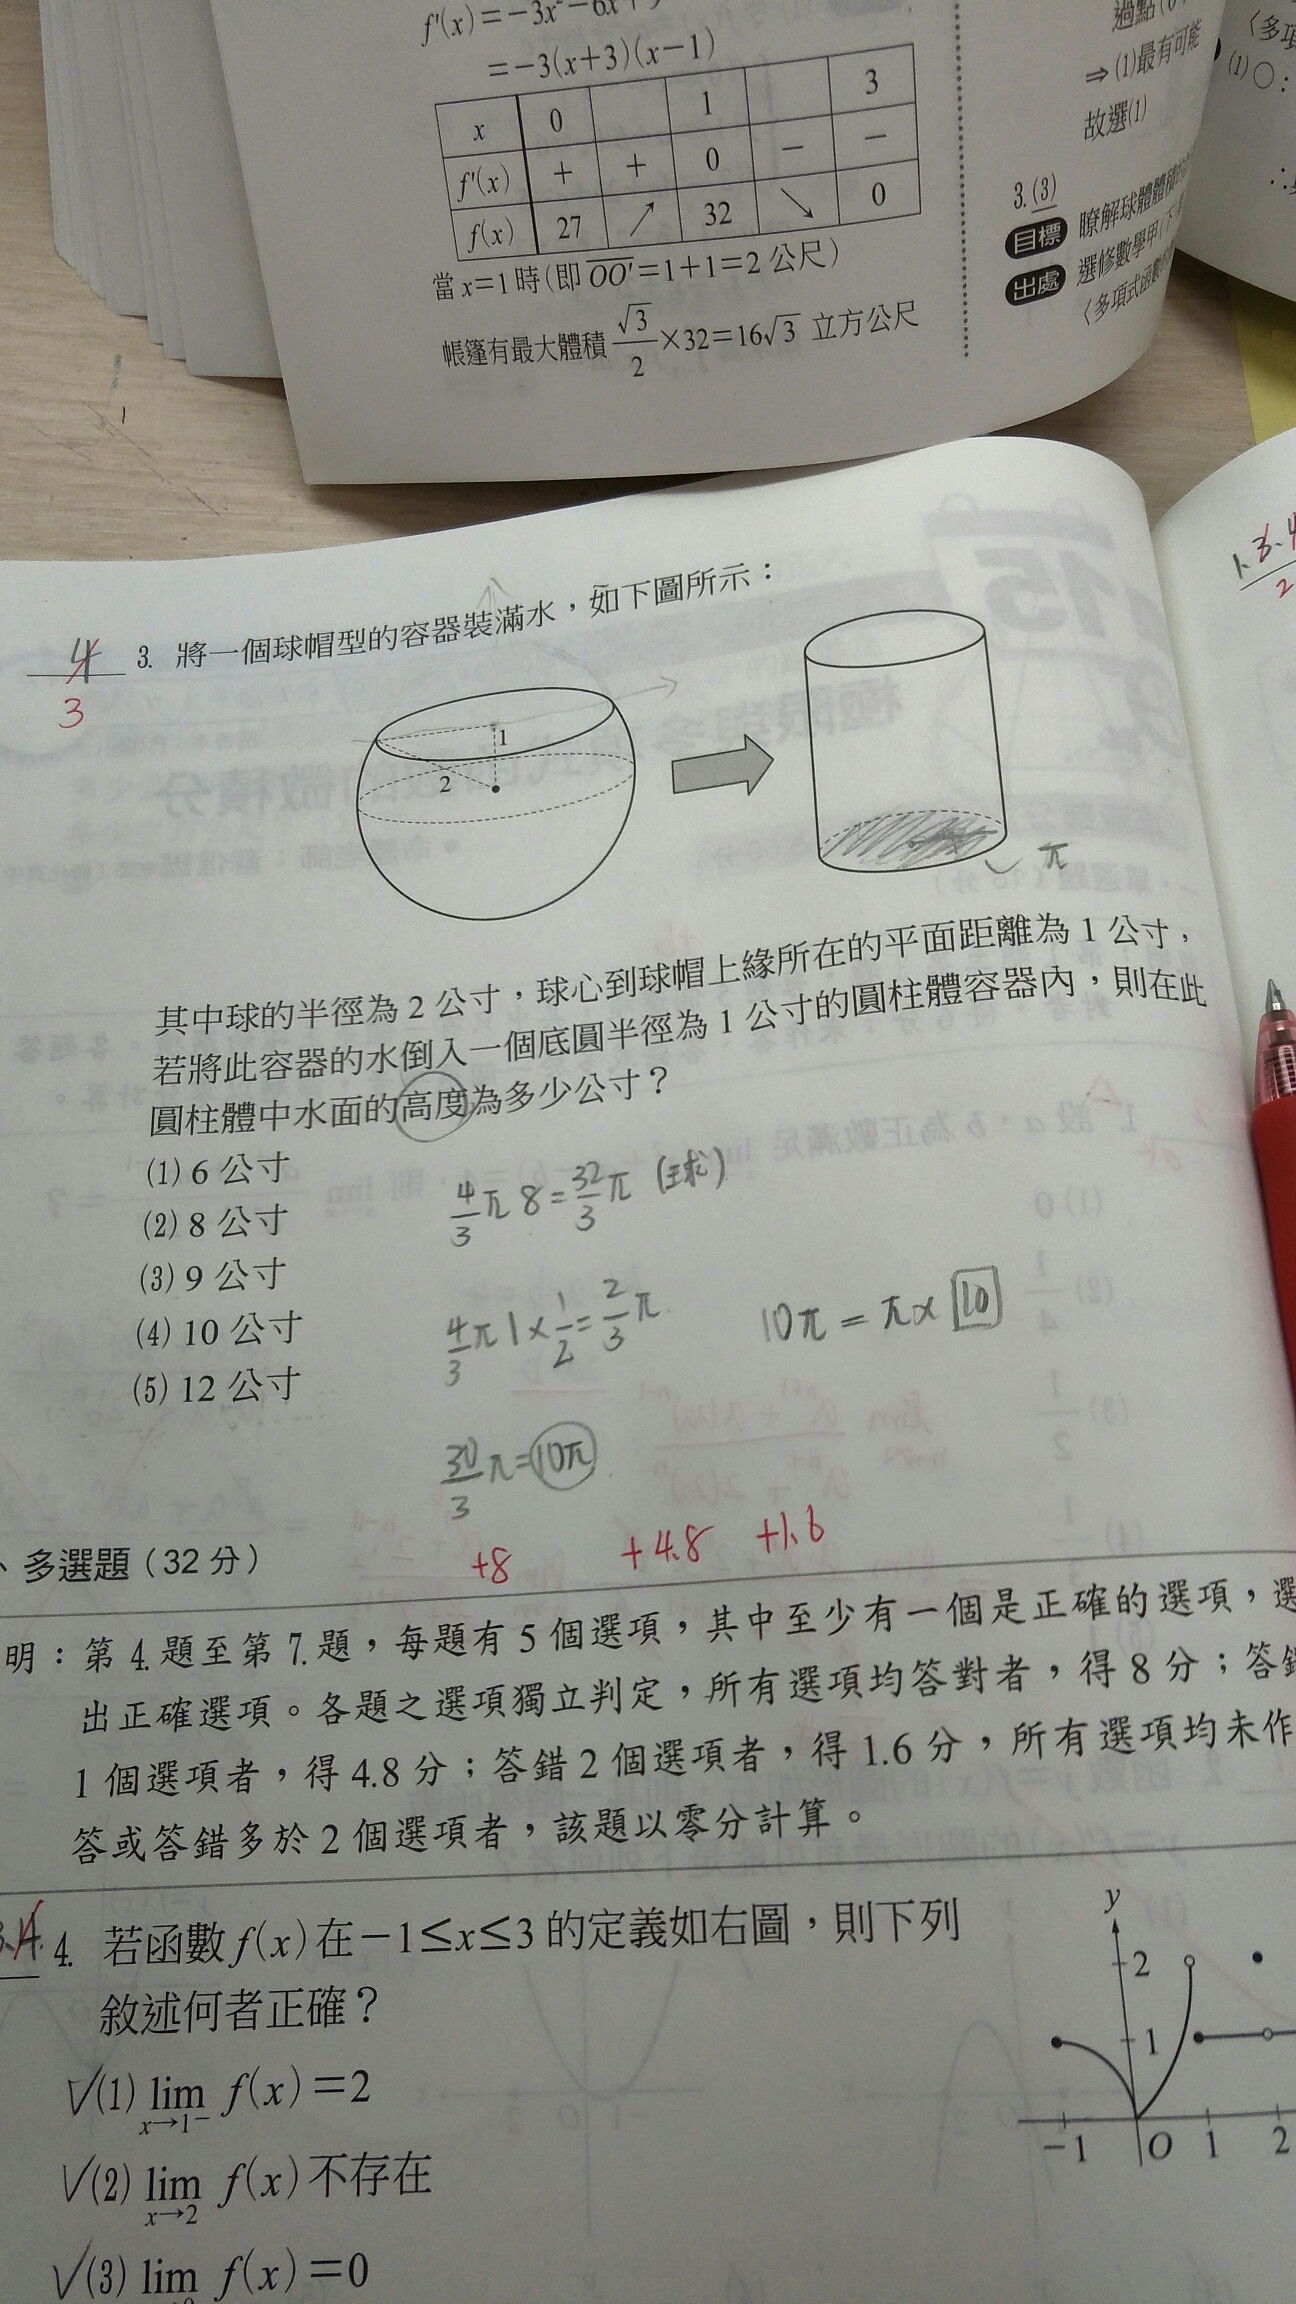 =-3(x+3)(x-1)
x 0 1 3
f'(x) + + 0 - -
f(x) 27 ↗ 32 ↘ 0
當x=1時(即OO'=1+1=2公尺)
帳篷有最大體積√3/2×32=16√3 立方公尺
⇒(1)最有可能
故選(1)
3.(3)
目標 瞭解球體體積
出處 選修數學甲(下)
4
3
3. 將一個球帽型的容器裝滿水,如下圖所示:
1
2
π
其中球的半徑為2公寸,球心到球帽上緣所在的平面距離為1公寸,
若將此容器的水倒入一個底圓半徑為1公寸的圓柱體容器內,則在此
圓柱體中水面的高度為多少公寸?
(1) 6 公寸
(2) 8 公寸
(3) 9 公寸
(4) 10 公寸
(5) 12 公寸
4/3π 8=32/3π (球)
4/3π 1×1/2=2/3π
10π=π×10
30/3π=10π
+8 +4.8 +1.6
、多選題(32分)
明:第4.題至第7.題,每題有5個選項,其中至少有一個是正確的選項,選
出正確選項。各題之選項獨立判定,所有選項均答對者,得8分;答錯
1個選項者,得4.8分;答錯2個選項者,得1.6分,所有選項均未作
答或答錯多於2個選項者,該題以零分計算。
4. 若函數f(x)在-1≤x≤3的定義如右圖,則下列
敘述何者正確?
✓(1) lim x→1⁻ f(x)=2
✓(2) lim x→2 f(x)不存在
✓(3) lim f(x)=0
y
2
1
-1 O 1 2